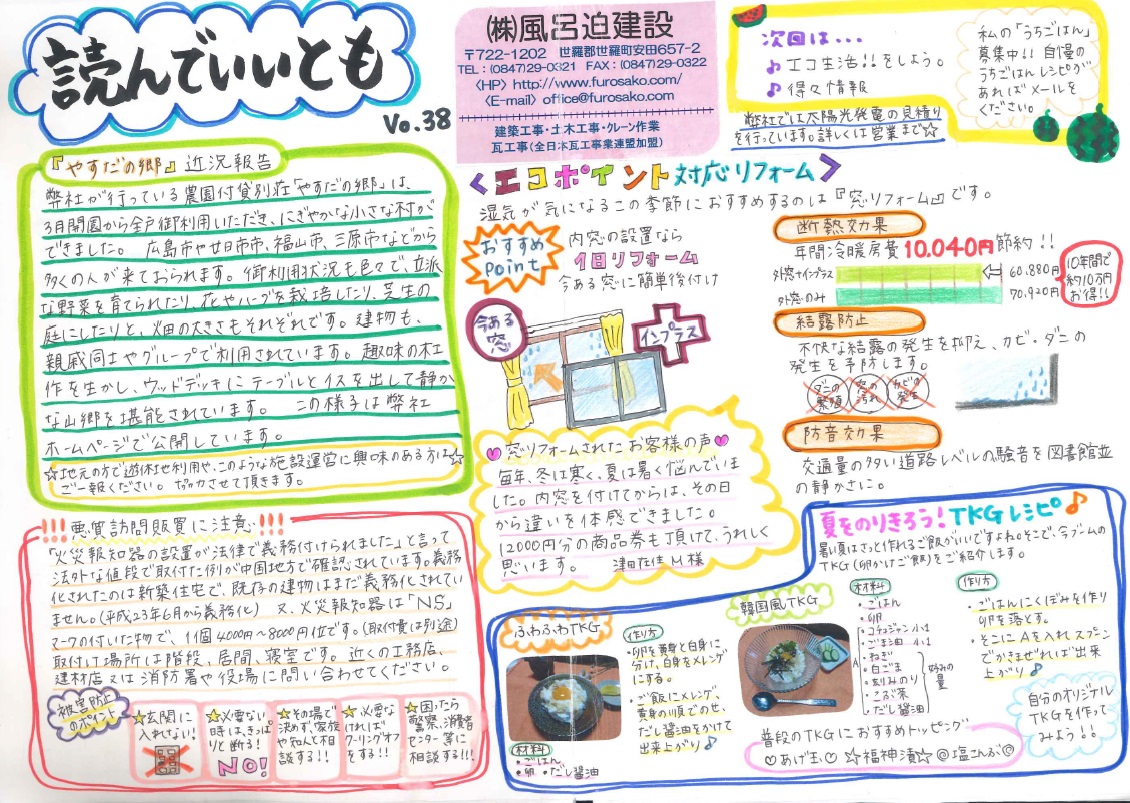 読んでいいとも
Vo.38
㈱風呂迫建設
〒722-1202 世羅郡世羅町安田657-2
TEL：(0847)29-0321 FAX：(0847)29-0322
〈HP〉http://www.furosako.com/
〈E-mail〉office@furosako.com
建築工事・土木工事・クレーン作業
瓦工事(全日本瓦工事業連盟加盟)
次回は・・・
♪エコ生活!!をしよう。
♪得々情報
弊社では太陽光発電の見積り
を行っています。詳しくは営業まで☆
私の「うちごはん」
募集中!! 自慢の
うちごはんレシピが
あればメールを
ください。
『やすだの郷』近況報告
弊社が行っている農園付貸別荘「やすだの郷」は、
3月開園から全戸御利用いただき、にぎやかな小さな村が
できました。 広島市や廿日市市、福山市、三原市などから
多くの人が来ておられます。御利用状況も色々で、立派
な野菜を育てられたり、花やハーブを栽培したり、芝生の
庭にしたりと、畑の大きさもそれぞれです。建物も、
親戚同士やグループで利用されています。趣味の木工
作を生かし、ウッドデッキにテーブルとイスを出して静か
な山郷を堪能されています。 この様子は弊社
ホームページで公開しています。
☆地元の方で遊休地利用や、このような施設運営に興味のある方は☆
ご一報ください。協力させて頂きます。
<エコポイント対応リフォーム>
湿気が気になるこの季節におすすめするのは『窓リフォーム』です。
おすすめ
Point
内窓の設置なら
1日リフォーム
今ある窓に簡単後付け
今ある
窓
インプラス
断熱効果
年間冷暖房費10.040円節約!!
外窓+インプラス
60.880円
外窓のみ
70.920円
10年間で
約10万円
お得!!
結露防止
不快な結露の発生を抑え、カビ・ダニの
発生を予防します。
ダニの
繁殖
窓の
汚れ
カビの
発生
防音効果
交通量の多い道路レベルの騒音を図書館並
の静かさに。
♥窓リフォームされたお客様の声♥
毎年、冬は寒く、夏は暑く悩んでいま
した。内窓を付けてからは、その日
から違いを体感できました。
12000円分の商品券も頂けて、うれしく
思います。 津田在住M様
!!!悪質訪問販売に注意!!!
「火災報知器の設置が法律で義務付けられました」と言って
法外な値段で取付た例が中国地方で確認されています。義務
化されたのは新築住宅で、既存の建物はまだ義務化されてい
ません。(平成23年6月から義務化) 又、火災報知器は「NS」
マークの付いた物で、1個4000円〜8000円位です。(取付費は別途)
取付け場所は階段、居間、寝室です。近くの工務店、
建材店又は消防署や役場に問い合わせてください。
被害防止
のポイント
☆玄関に
入れない!
☆必要ない
時は、きっぱ
りと断る!
NO!
☆その場で
決めず、家族
や知人と相
談する!!
☆必要な
ければ
クーリングオフ
をする!!
☆困ったら
警察、消費者
センター等に
相談する!!!
夏をのりきろう!TKGレシピ♪
暑い夏はさっと作れるご飯がいいですよね。そこで、今ブームの
TKG(卵かけご飯)をご紹介します。
ふわふわTKG
材料
・ごはん
・卵 ・だし醤油
作り方
・卵を黄身と白身に
分け、白身をメレンゲ
にする。
・ご飯にメレンゲ、
黄身の順でのせ、
だし醤油をかけて
出来上がり♪
韓国風TKG
材料
・ごはん
・卵
・コチュジャン 小1
・ごま油 小1
A
・ねぎ
・白ごま
・刻みのり
・こぶ茶
・だし醤油
好みの
量
作り方
・ごはんにくぼみを作り
卵を落とす。
・そこにAを入れスプーン
でかきまぜれば出来
上がり♪
普段のTKGにおすすめトッピング
♡あげ玉♡ ☆福神漬☆ @塩こんぶ@
自分のオリジナル
TKGを作って
みよう!!